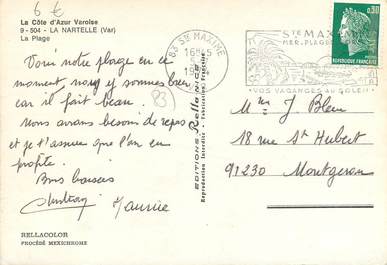 6 €
La Côte d'Azur Varoise
9 - 504 - LA NARTELLE (Var)
La Plage
83 STE MAXIME
16H
STE MAXIME
MER_PLAGE
VOS VACANCES AU SOLEIL
0,30
Voici notre plage en ce
moment, nous y sommes bien
car il fait beau.
Nous avons besoin de repos
et je t'assure que l'on en
profite.
Bons baisers
Maurice
83
EDITIONS Rella NICE
Reproduction Interdite - Fabrication Française
M me J. Bleu
18 rue St Hubert
91230 Montgeron
RELLACOLOR
PROCÉDÉ MEXICHROME